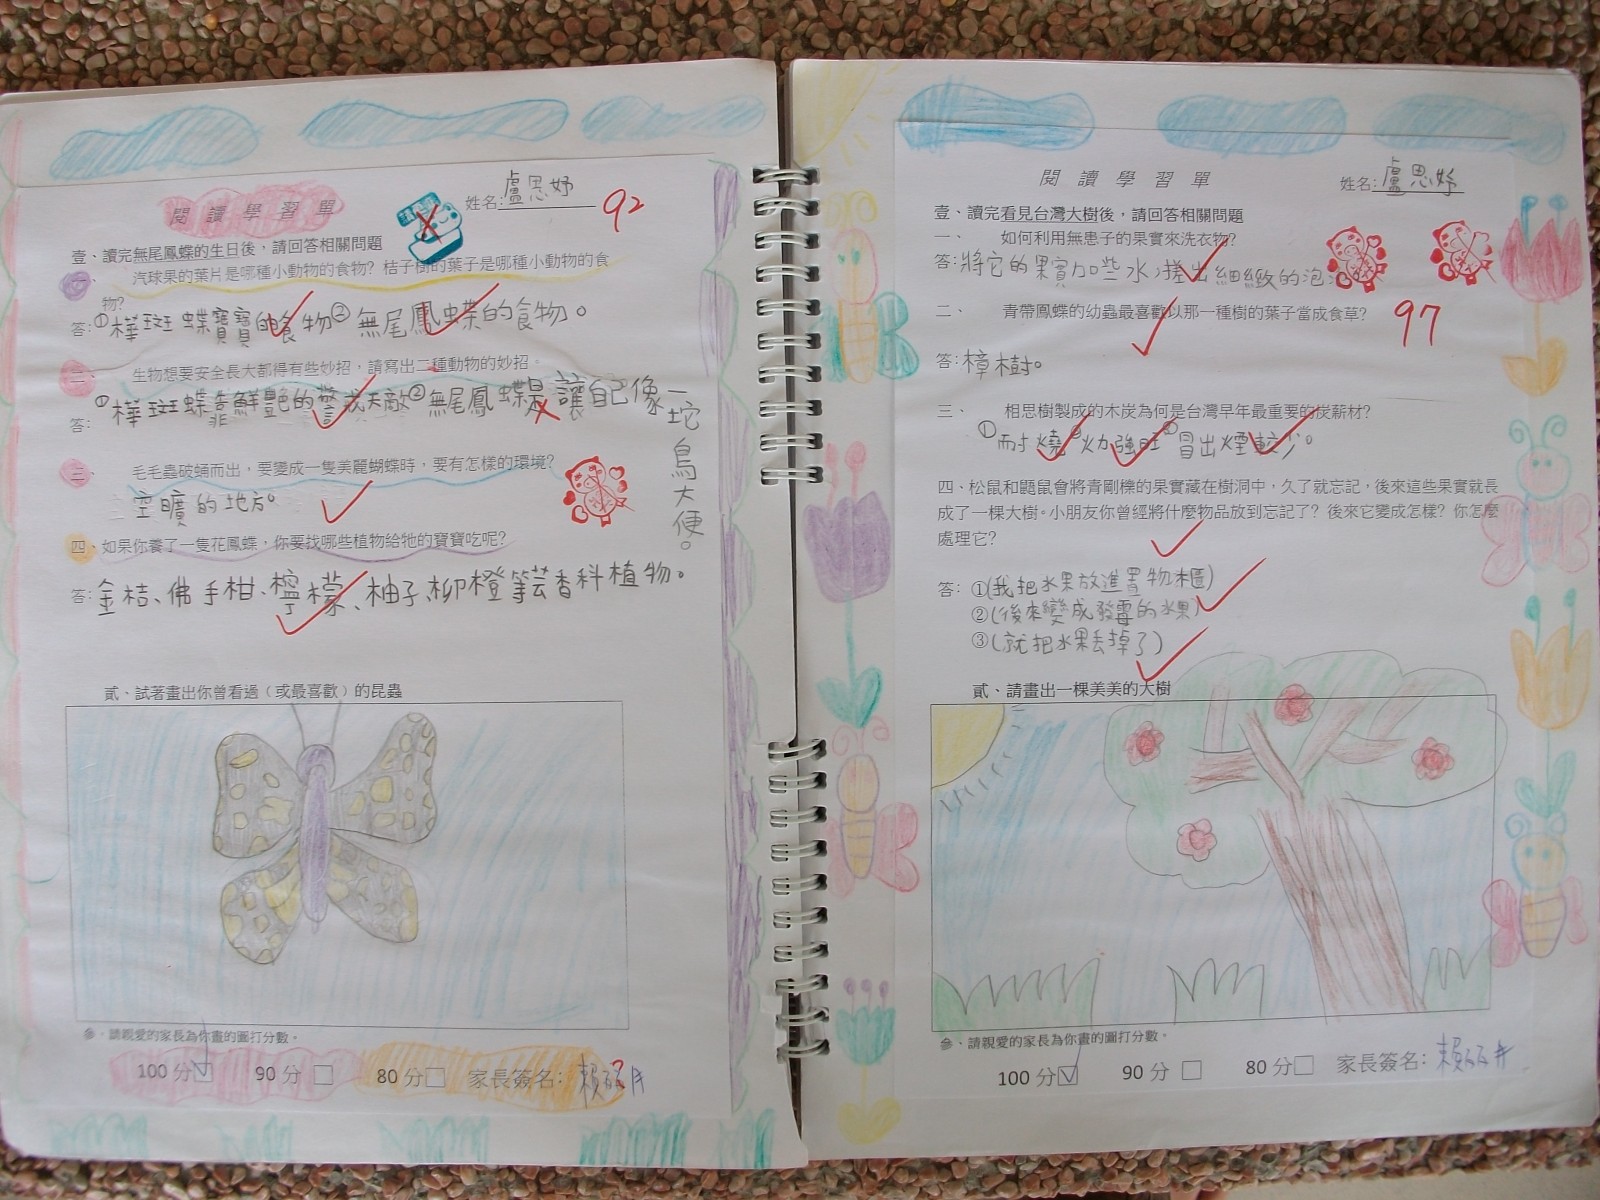 閱讀學習單
姓名:盧思妤
92
壹、讀完無尾鳳蝶的生日後，請回答相關問題
一、汽球果的葉片是哪種小動物的食物？桔子樹的葉子是哪種小動物的食
物?
答:①樺斑蝶寶寶的食物②無尾鳳蝶的食物。
二、生物想要安全長大都得有些妙招，請寫出二種動物的妙招。
答:①樺斑蝶靠鮮艷的警戒天敵②無尾鳳蝶是讓自己像一坨鳥大便。
三、毛毛蟲破蛹而出，要變成一隻美麗蝴蝶時，要有怎樣的環境?
空曠的地方。
四、如果你養了一隻花鳳蝶，你要找哪些植物給牠的寶寶吃呢?
答:金桔、佛手柑、檸檬、柚子、柳橙等芸香科植物。
貳、試著畫出你曾看過（或最喜歡）的昆蟲
參、請親愛的家長為你畫的圖打分數。
100分☑ 90分□ 80分□ 家長簽名:
閱讀學習單
姓名:盧思妤
壹、讀完看見台灣大樹後，請回答相關問題
一、如何利用無患子的果實來洗衣物?
答:將它的果實加些水,搓出細緻的泡
二、青帶鳳蝶的幼蟲最喜歡以那一種樹的葉子當成食草?
97
答:樟樹。
三、相思樹製成的木炭為何是台灣早年最重要的炭薪材?
①耐燒②火力強旺③冒出煙較少。
四、松鼠和鼯鼠會將青剛櫟的果實藏在樹洞中，久了就忘記，後來這些果實就長
成了一棵大樹。小朋友你曾經將什麼物品放到忘記了？後來它變成怎樣？你怎麼
處理它?
答:①(我把水果放進置物櫃)
②(後來變成發霉的水果)
③(就把水果丟掉了)
貳、請畫出一棵美美的大樹
參、請親愛的家長為你畫的圖打分數。
100分☑ 90分□ 80分□ 家長簽名: